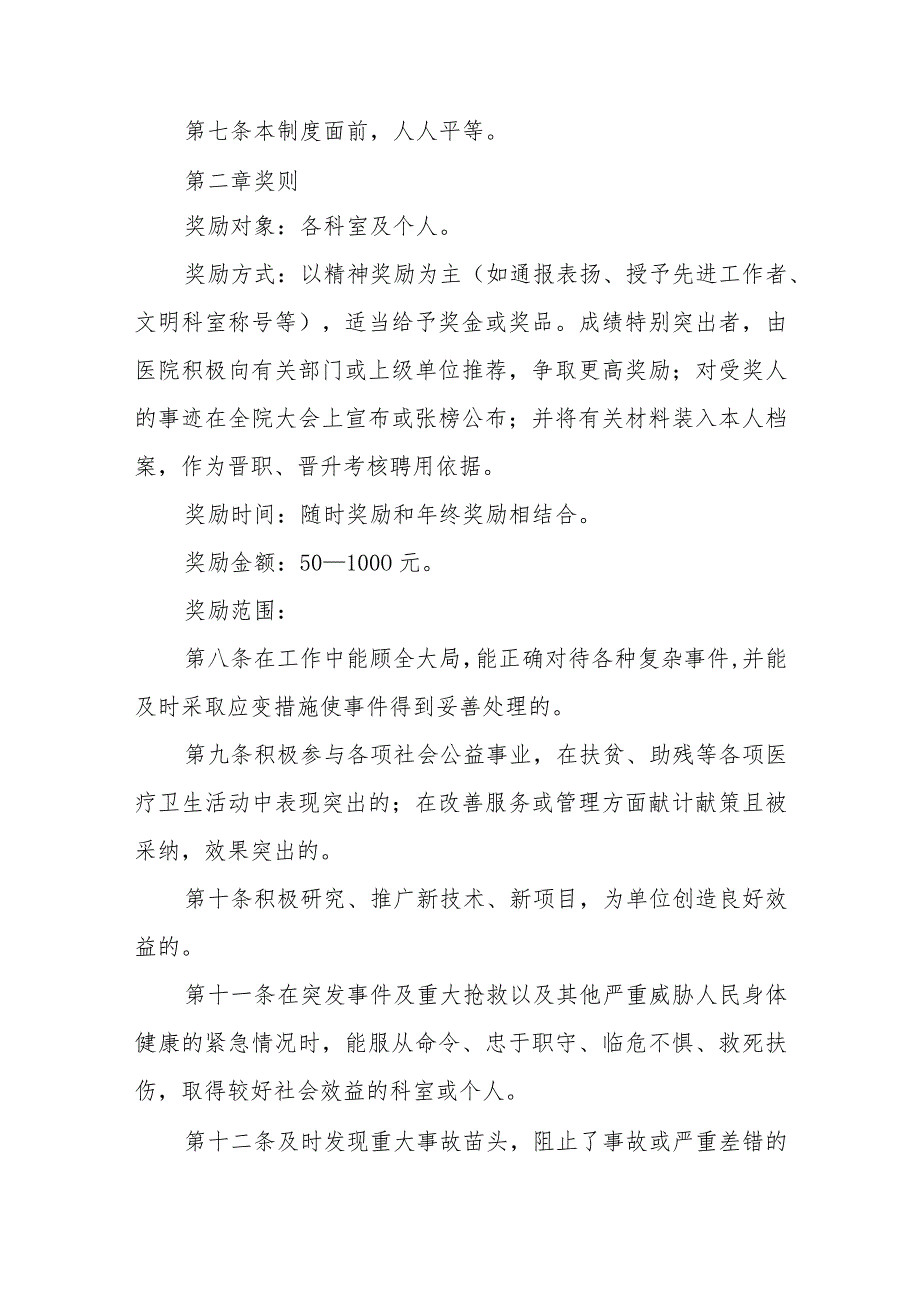 第七条本制度面前，人人平等。
第二章奖则
奖励对象：各科室及个人。
奖励方式：以精神奖励为主（如通报表扬、授予先进工作者、
文明科室称号等），适当给予奖金或奖品。成绩特别突出者，由
医院积极向有关部门或上级单位推荐，争取更高奖励；对受奖人
的事迹在全院大会上宣布或张榜公布；并将有关材料装入本人档
案，作为晋职、晋升考核聘用依据。
奖励时间：随时奖励和年终奖励相结合。
奖励金额：50—1000 元。
奖励范围：
第八条在工作中能顾全大局,能正确对待各种复杂事件,并能
及时采取应变措施使事件得到妥善处理的。
第九条积极参与各项社会公益事业，在扶贫、助残等各项医
疗卫生活动中表现突出的；在改善服务或管理方面献计献策且被
采纳，效果突出的。
第十条积极研究、推广新技术、新项目，为单位创造良好效
益的。
第十一条在突发事件及重大抢救以及其他严重威胁人民身体
健康的紧急情况时，能服从命令、忠于职守、临危不惧、救死扶
伤，取得较好社会效益的科室或个人。
第十二条及时发现重大事故苗头，阻止了事故或严重差错的